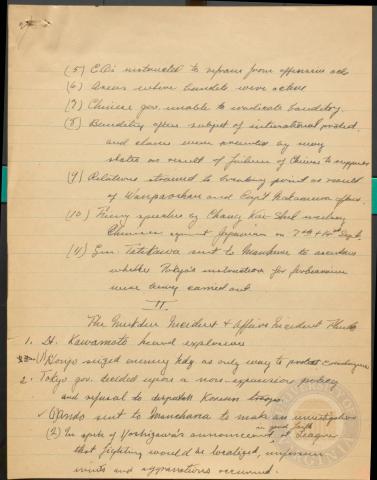 (5) instructed to refrain from offensive acts
(6) Areas where bandits were active
(7) Chinese gov. unable to eradicate banditry.
(8) Banditry often subject of international protest,
and claims were presented by many
states as result of failure of Chinese to suppress
(9) Relations strained to breaking point as result
of Wanpaoshan and Capt Nakamura affairs.
(10) Fiery speeches by Chang Kai-Shek
Chinese against Japanese on 7th & 14th Sept.
(11) Gen. Tatekawa sent to Manchuria to ascertain
whether Tokyo's instruction for
were being carried out
II.
The Mukden Incident & Affairs Incident Thereto
1. Lt. Kawamoto heard explosion
(1) Honjo seized enemy hdq as only way to protect
2. Tokyo gov. decided upon a non-expansion policy
and refusal to dispatch Korean troops.
(1) Ando sent to Manchuria to make an investigation
in good faith
(2) In spite of Yoshizawa's announcement at League
that fighting would be localized, unforeseen
events and aggravations occurred.